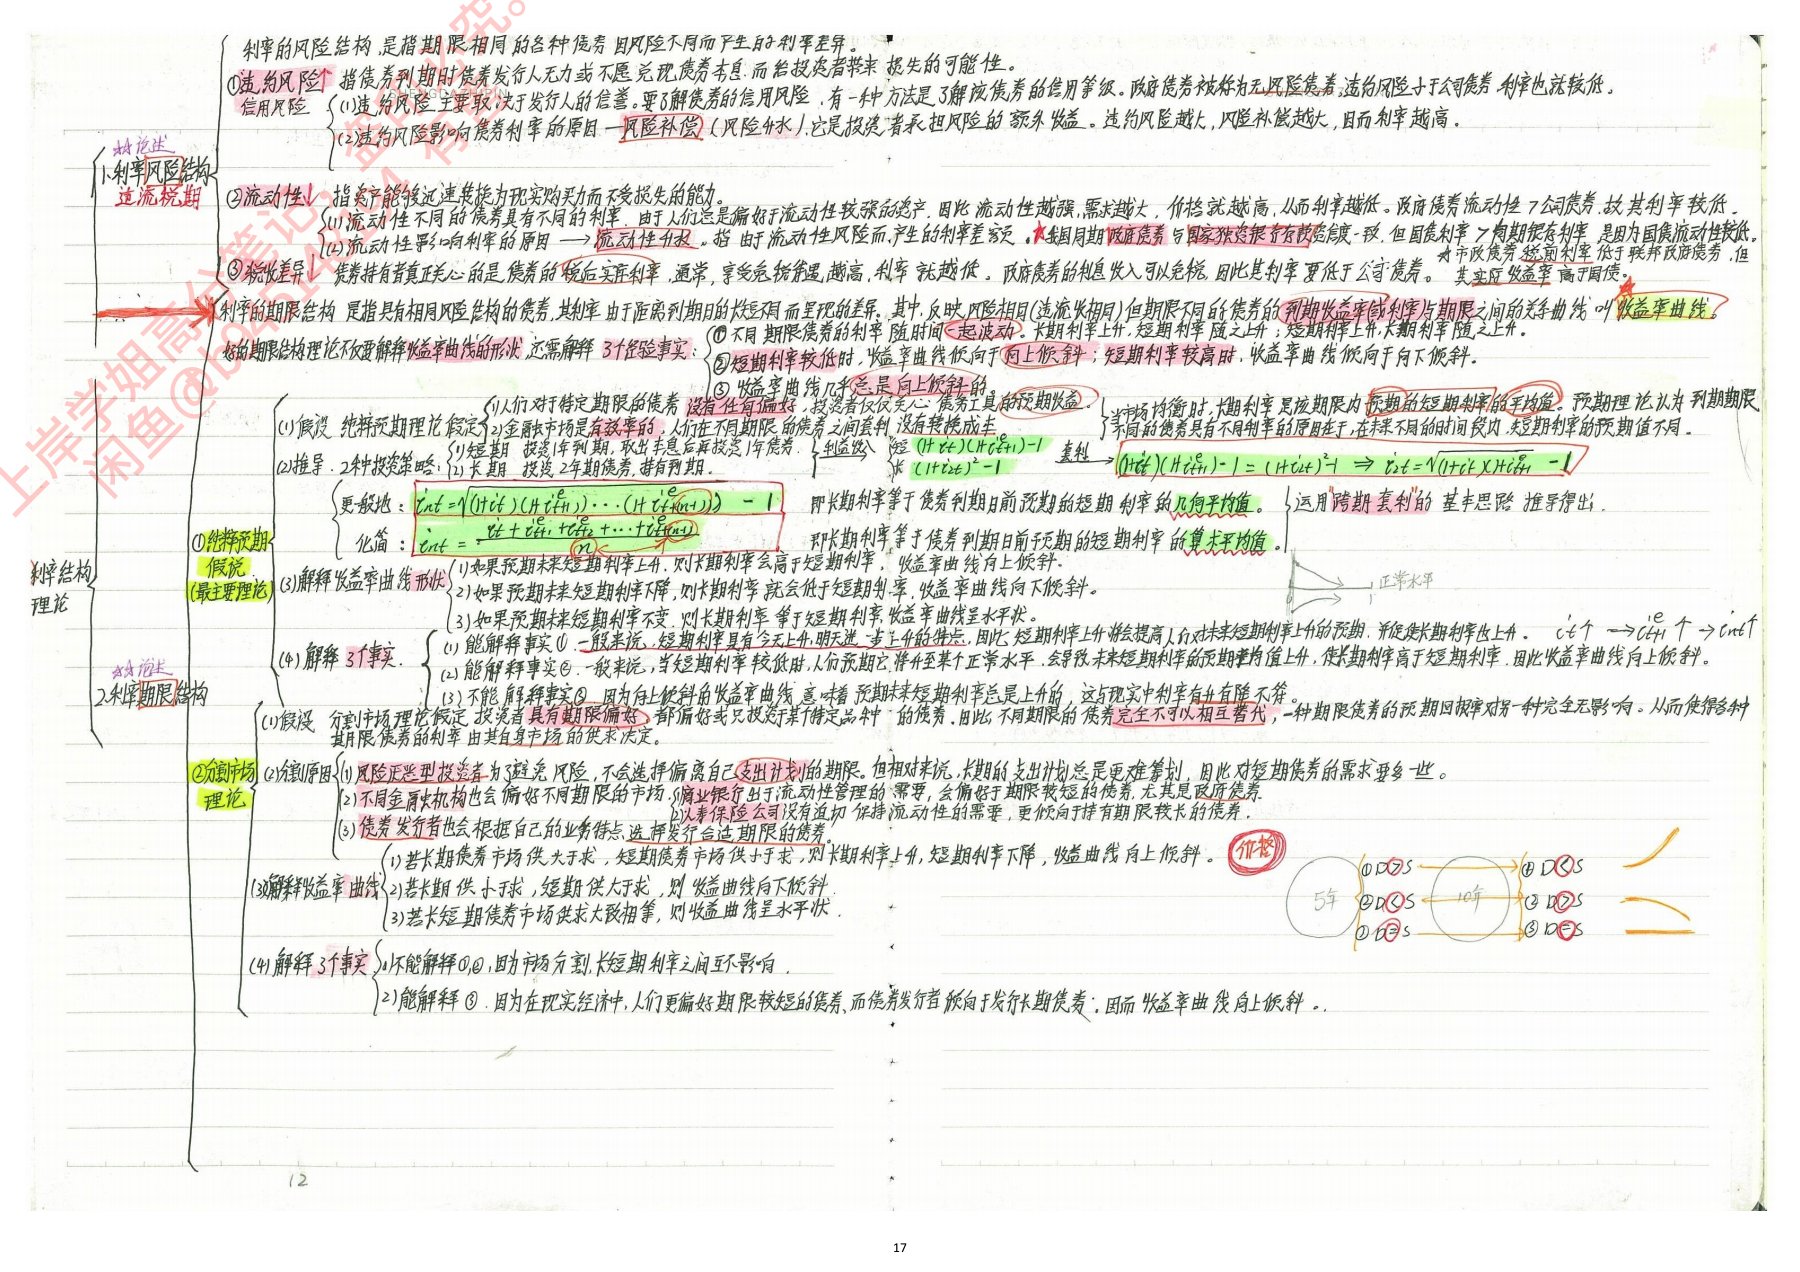 利率的风险结构,是指期限相同的各种债券因风险不同而产生的利率差异。
①违约风险↑ 指债券到期时债券发行人无力或不愿兑现债券本息,而给投资者带来损失的可能性。
信用风险
(1)违约风险主要取决于发行人的信誉。要了解债券的信用风险,有一种方法是了解该债券的信用等级。政府债券被称为无风险债券,违约风险小于公司债券,利率也就较低。
(2)违约风险影响债券利率的原因—风险补偿(风险升水),它是投资者承担风险的额外收益。违约风险越大,风险补偿越大,因而利率越高。
☆☆论述
1.利率风险结构
违流税期
②流动性↓ 指资产能够迅速转换为现实购买力而不受损失的能力。
(1)流动性不同的债券具有不同的利率,由于人们总是偏好于流动性较强的资产,因此流动性越强,需求越大,价格就越高,从而利率越低。政府债券流动性>公司债券,故其利率较低。
(2)流动性影响利率的原因→流动性升水。指由于流动性风险而产生的利率差额。★我国同期政府债券与国家独资银行存款信度一致,但国债利率>同期银行利率,是因为国债流动性较低。
③税收差异↓ 债券持有者真正关心的是债券的税后实际利率,通常,享受免税待遇越高,利率就越低。政府债券的利息收入可以免税,因此其利率要低于公司债券。
☆市政债券税前利率低于联邦政府债券,但
其实际收益率高于国债。
利率的期限结构 是指具有相同风险结构的债券,其利率由于距离到期日的长短不同而呈现的差异。其中,反映风险相同(违流收相同)但期限不同的债券的到期收益率(或利率)与期限之间的关系曲线叫收益率曲线。
好的期限结构理论不仅要解释收益率曲线的形状,还需解释3个经验事实:
①不同期限债券的利率随时间一起波动。长期利率上升,短期利率随之上升;短期利率上升,长期利率随之上升。
②短期利率较低时,收益率曲线倾向于向上倾斜;短期利率较高时,收益率曲线倾向于向下倾斜。
③收益率曲线几乎总是向上倾斜的。
(1)假设 纯粹预期理论假定
1)人们对于特定期限的债券没有任何偏好,投资者仅仅关心债券工具的预期收益。
2)金融市场是有效率的,人们在不同期限的债券之间套利没有转换成本
当市场均衡时,长期利率是该期限内预期的短期利率的平均值。预期理论认为到期期限
不同的债券具有不同利率的原因在于,在未来不同的时间段内,短期利率的预期值不同。
(2)推导.2种投资策略:
1)短期 投资1年到期,取出本息后再投资1年债券.
2)长期 投资2年期债券,持有到期.
短 (1+it)(1+i^e t+1)-1
长 (1+i2t)²-1
套利 → (1+it)(1+i^e t+1)-1=(1+i2t)²-1 ⇒ i2t=√(1+it)(1+i^e t+1) -1
更一般地: int=ⁿ√(1+it)(1+i^e t+1)...(1+i^e t+(n-1)) -1 即长期利率等于债券到期日前预期的短期利率的几何平均值。
运用"跨期套利"的基本思路推导得出.
化简: int=(it+i^e t+1+i^e t+2+...+i^e t+(n-1))/n 即长期利率等于债券到期日前预期的短期利率的算术平均值。
①纯粹预期
假说
(最主要理论)
(3)解释收益率曲线形状
1)如果预期未来短期利率上升,则长期利率会高于短期利率,收益率曲线向上倾斜.
2)如果预期未来短期利率下降,则长期利率就会低于短期利率,收益率曲线向下倾斜。
3)如果预期未来短期利率不变,则长期利率等于短期利率,收益率曲线呈水平状。
正常水平
利率结构
理论
(4)解释3个事实.
(1)能解释事实①.一般来说,短期利率具有今天上升,明天进一步上升的特点,因此,短期利率上升将会提高人们对未来短期利率上升的预期,并促使长期利率也上升。 it↑ →i^e t+1↑ →int↑
(2)能解释事实②.一般来说,当短期利率较低时,人们预期它将升至某个正常水平,会导致未来短期利率的预期平均值上升,使长期利率高于短期利率,因此收益率曲线向上倾斜。
(3)不能解释事实③.因为向上倾斜的收益率曲线意味着预期未来短期利率总是上升的,这与现实中利率有升有降不符。
☆☆论述
2.利率期限结构
(1)假设 分割市场理论假定,投资者具有期限偏好,都偏好或只投资于某个特定品种的债券.因此,不同期限的债券完全不可以相互替代,一种期限债券的预期回报率对另一种完全无影响。从而使得各种
其期限债券的利率由其自身市场的供求决定。
②分割市场
理论
(2)分割原因
(1)风险厌恶型投资者为了避免风险,不会选择偏离自己支出计划的期限。但相对来说,长期的支出计划总是更难筹划,因此对短期债券的需求要多一些。
(2)不同金融机构也会偏好不同期限的市场.
1)商业银行出于流动性管理的需要,会偏好于期限较短的债券,尤其是政府债券
2)人寿保险公司没有迫切保持流动性的需要,更倾向于持有期限较长的债券.
(3)债券发行者也会根据自己的业务特点,选择发行合适期限的债券.
(3)解释收益率曲线
1)若长期债券市场供大于求,短期债券市场供小于求,则长期利率上升,短期利率下降,收益曲线向上倾斜。
2)若长期供小于求,短期供大于求,则收益曲线向下倾斜.
3)若长短期债券市场供求大致相等,则收益曲线呈水平状.
价格
5年
①D>S
②D<S
③D=S
10年
①D<S
②D>S
③D=S
(4)解释3个事实
1)不能解释①,②,因为市场分割,长短期利率之间互不影响.
2)能解释③.因为在现实经济中,人们更偏好期限较短的债券,而债券发行者倾向于发行长期债券;因而收益率曲线向上倾斜.
12
17
上岸学姐高分笔记,盗印必究。